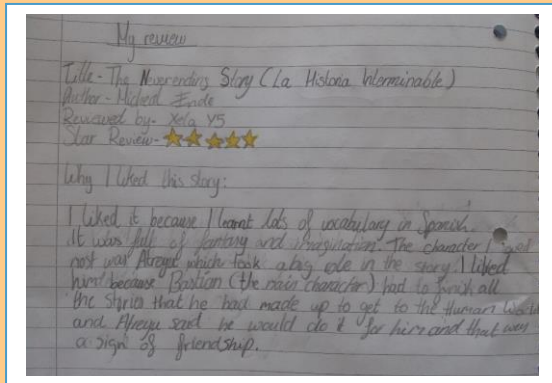 My review
Title - The Neverending Story (La Historia Interminable)
Author - Micheal Ende
Reviewed by - Xela Y5
Star Review -
Why I liked this story:
I liked it because I learnt lots of vocabulary in Spanish.
It was full of fantasy and imagination. The character I liked
most was Atreyu which took a big role in the story. I liked
him because Bastian (the main character) had to finish all
the stories that he had made up to get to the Human World
and Atreyu said he would do it for him and that was
a sign of friendship.